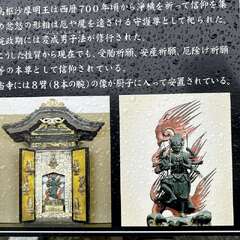 烏枢沙摩明王は西暦700年頃から浄穢を祈って信仰を集
め忿怒の形相は厄や魔を遠ざける守護尊として祀られた。
院政期には変成男子法が修行された。
こうした性質から現在でも、受胎祈願、安産祈願、厄除け祈願
等の本尊として信仰されている。
当寺には8臂（8本の腕）の像が厨子に入って安置されている。